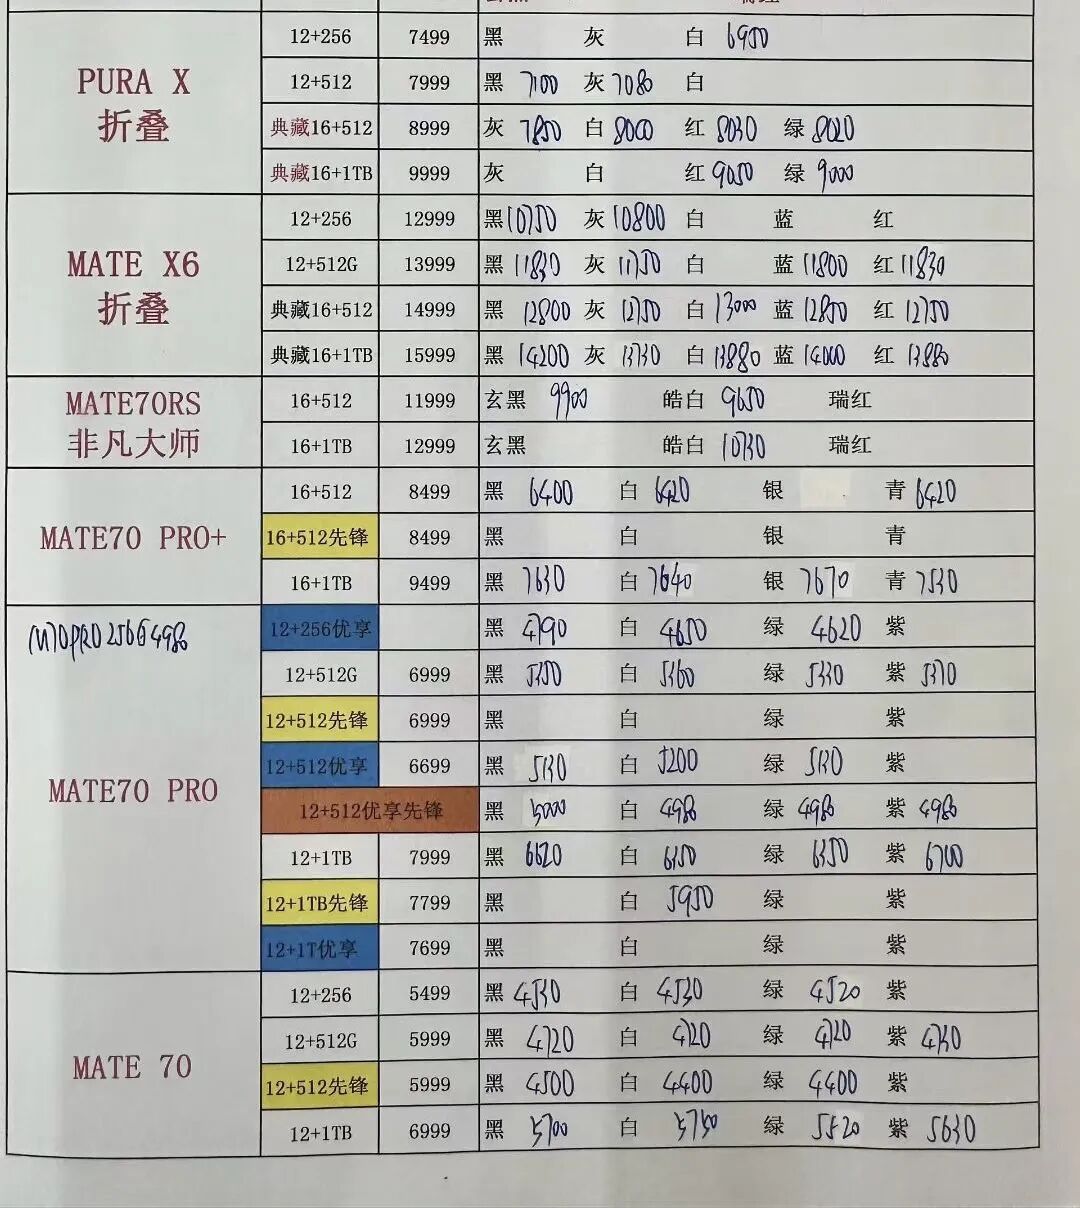 12+256 7499 黑 灰 白 6950
PURA X 折叠
12+512 7999 黑 7100 灰 7080 白
典藏16+512 8999 灰 7850 白 8000 红 8030 绿 8020
典藏16+1TB 9999 灰 白 红 9050 绿 9000
12+256 12999 黑 10750 灰 10800 白 蓝 红
MATE X6 折叠
12+512G 13999 黑 11830 灰 11750 白 蓝 11800 红 11830
典藏16+512 14999 黑 12800 灰 12750 白 13000 蓝 12850 红 12750
典藏16+1TB 15999 黑 14200 灰 13730 白 13880 蓝 14000 红 13880
MATE70RS 非凡大师
16+512 11999 玄黑 9900 皓白 9650 瑞红
16+1TB 12999 玄黑 皓白 10730 瑞红
16+512 8499 黑 6400 白 6420 银 青 6420
MATE70 PRO+
16+512先锋 8499 黑 白 银 青
16+1TB 9499 黑 7630 白 7640 银 7670 青 7530
M70PRO 256G 4980
12+256优享 黑 4790 白 4650 绿 4620 紫
12+512G 6999 黑 5350 白 5360 绿 5330 紫 5370
12+512先锋 6999 黑 白 绿 紫
12+512优享 6699 黑 5130 白 5200 绿 5130 紫
MATE70 PRO
12+512优享先锋 黑 5000 白 4980 绿 4980 紫 4980
12+1TB 7999 黑 6620 白 6350 绿 6350 紫 6700
12+1TB先锋 7799 黑 白 5950 绿 紫
12+1T优享 7699 黑 白 绿 紫
12+256 5499 黑 4530 白 4530 绿 4520 紫
12+512G 5999 黑 4720 白 4720 绿 4720 紫 4730
MATE 70
12+512先锋 5999 黑 4500 白 4400 绿 4400 紫
12+1TB 6999 黑 5700 白 5750 绿 5520 紫 5630